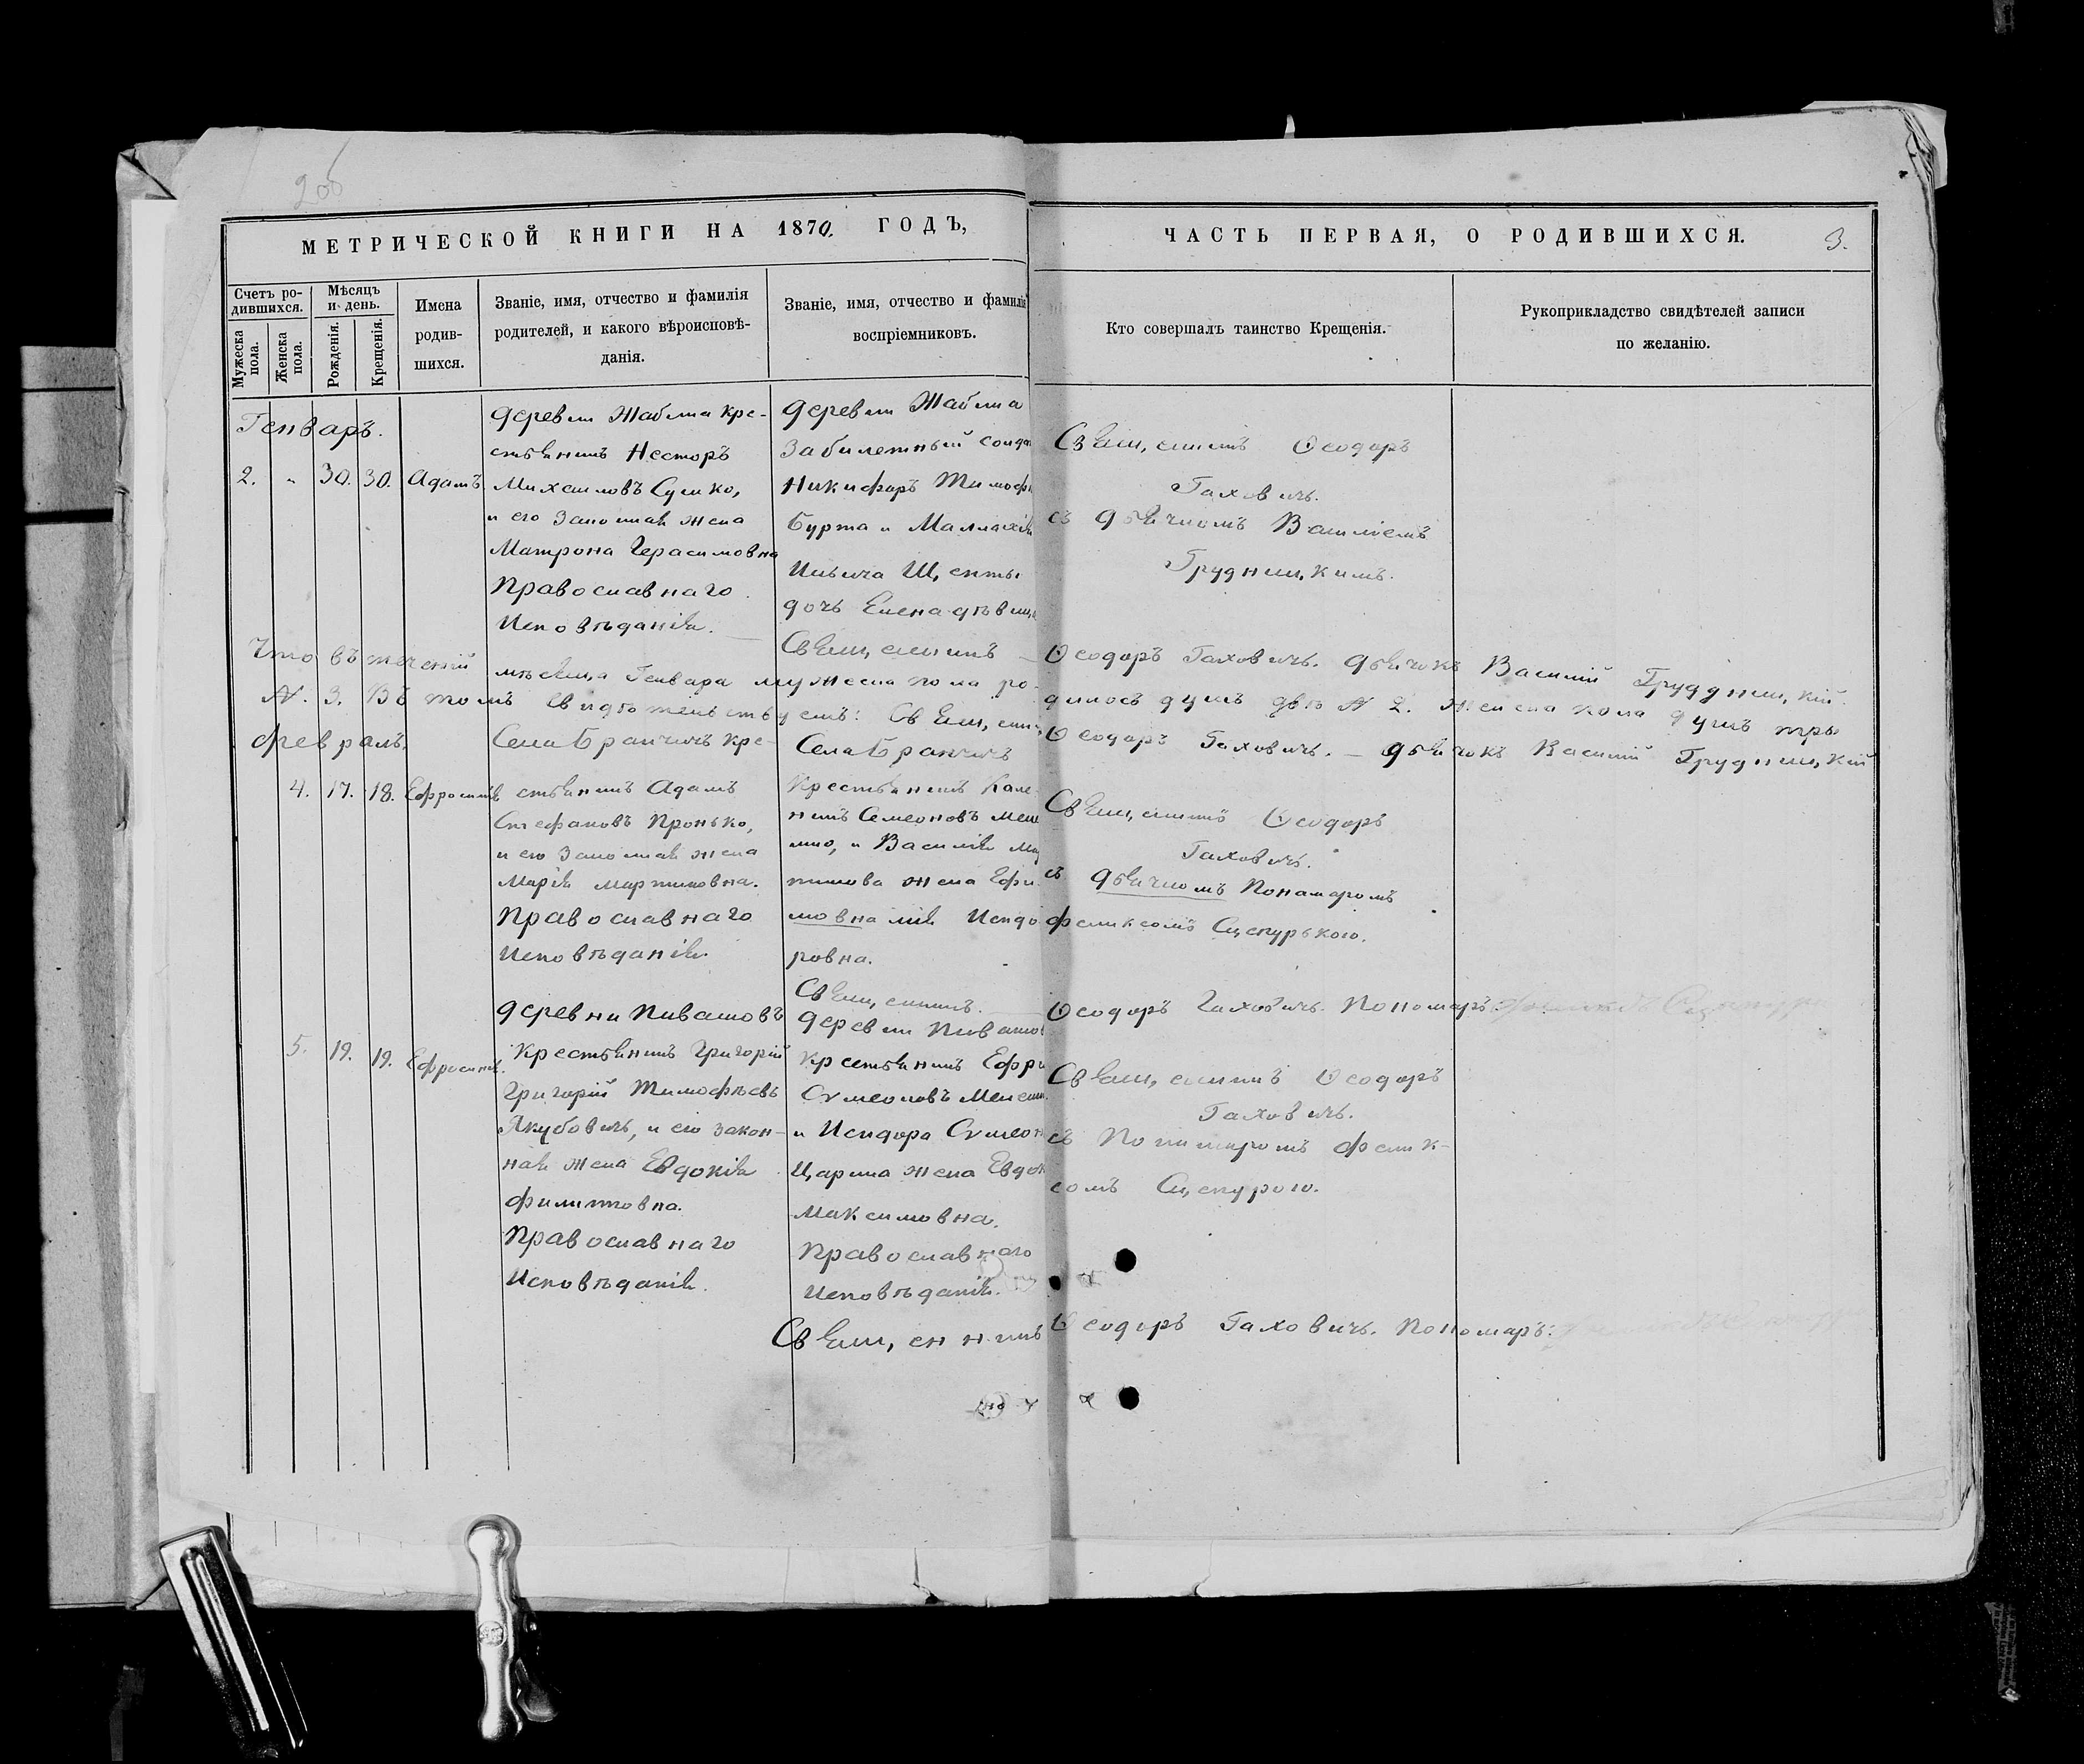 206
МЕТРИЧЕСКОЙ КНИГИ НА 1870. ГОДЪ,
ЧАСТЬ ПЕРВАЯ, О РОДИВШИХСЯ.
3.
Счетъ ро-
дившихся.
Мужеска
пола.
Женска
пола.
Мѣсяцъ
и день.
Рожденія.
Крещенія.
Имена
родив-
шихся.
Званіе, имя, отчество и фамилія
родителей, и какого вѣроисповѣ-
данія.
Званіе, имя, отчество и фамилія
воспріемниковъ.
Кто совершалъ таинство Крещенія.
Рукоприкладство свидѣтелей записи
по желанію.
Генваръ.
2. " 30. 30. Адамъ
деревни Жабина кре-
стьянинъ Несторъ
Михаиловъ Сушко,
и его законная жена
Матрона Герасимовна
Православнаго
Исповѣданія.
деревни Жабина
Забилетный солда
Никифоръ Тимоф
Бурта и Малахія
Ильича
дочь Елена дѣвица
Священникъ Ѳеодоръ
Гаховичъ.
съ дьячкомъ Василіемъ
Грудницкимъ.
Священникъ Ѳеодоръ Гаховичъ. Дьячокъ Василій Грудницкій
Что въ теченій мѣсяца Генвара мужеска пола ро-
дилось душъ двѣ № 2. Женска пола душъ три
№. 3. Въ томъ свидѣтельствуемъ: Священ. Ѳеодоръ Гаховичъ. — Дьячокъ Василій Грудницкій
Февраль.
4. 17. 18. Ефросинія
Села Бранчичъ кре-
стьянинъ Адамъ
Стефановъ Пронько,
и его законная жена
Марія Мартиновна.
Православнаго
Исповѣданія.
Села Бранчичъ
Крестьянинъ Кале
никъ Семеоновъ
и Василія
жена Ефи
мовна Исидо
ровна.
Священникъ Ѳеодоръ
Гаховичъ.
съ дьячкомъ Пономаромъ
Феликсомъ
Священникъ Ѳеодоръ Гаховичъ. Пономаръ:
5. 19. 19. Ефросинія.
деревни Пивашовъ
Крестьянинъ Григорій
Григорій Тимофѣевъ
Якубовичъ, и его закон-
ная жена Евдокія
Филиповна.
Православнаго
Исповѣданія.
деревни Пивашов
Крестьянинъ Ефри
Сѵмеоновъ
и Исидора Сѵмеон
жена Евдок
Максимовна.
Православнаго
Исповѣданія.
Священникъ Ѳеодоръ
Гаховичъ.
съ Пономаромъ Фелик-
сомъ
Священникъ Ѳеодоръ Гаховичъ. Пономаръ: